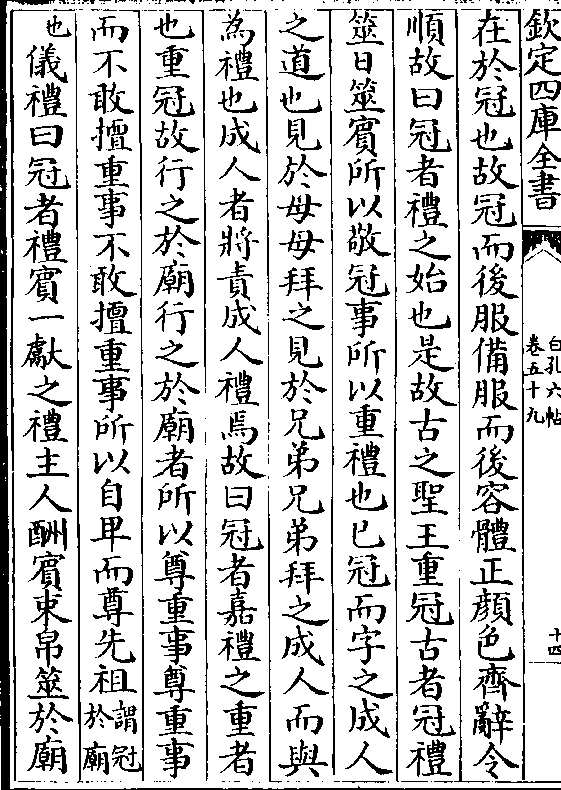 欽定四庫全書
白孔六帖
卷五十九
十四
在於冠也故冠而後服備服而後容體正顔色齊辭令
順故曰冠者禮之始也是故古之聖王重冠古者冠禮
筮日筮賓所以敬冠事所以重禮也已冠而字之成人
之道也見於母母拜之見於兄弟兄弟拜之成人而與
為禮也成人者將責成人禮焉故曰冠者嘉禮之重者
也重冠故行之於廟行之於廟者所以尊重事尊重事
而不敢擅重事不敢擅重事所以自卑而尊先祖謂冠
於廟
也儀禮曰冠者禮賓一獻之禮主人酬賓束帛筮於廟